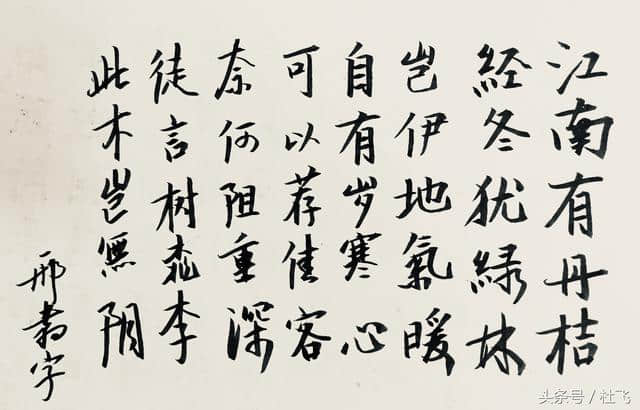 江南有丹桔
經冬犹綠林
岂伊地氣暖
自有岁寒心
可以荐佳客
奈何阻重深
徒言树桃李
此木岂無阴
邢字
头条号／杜飞